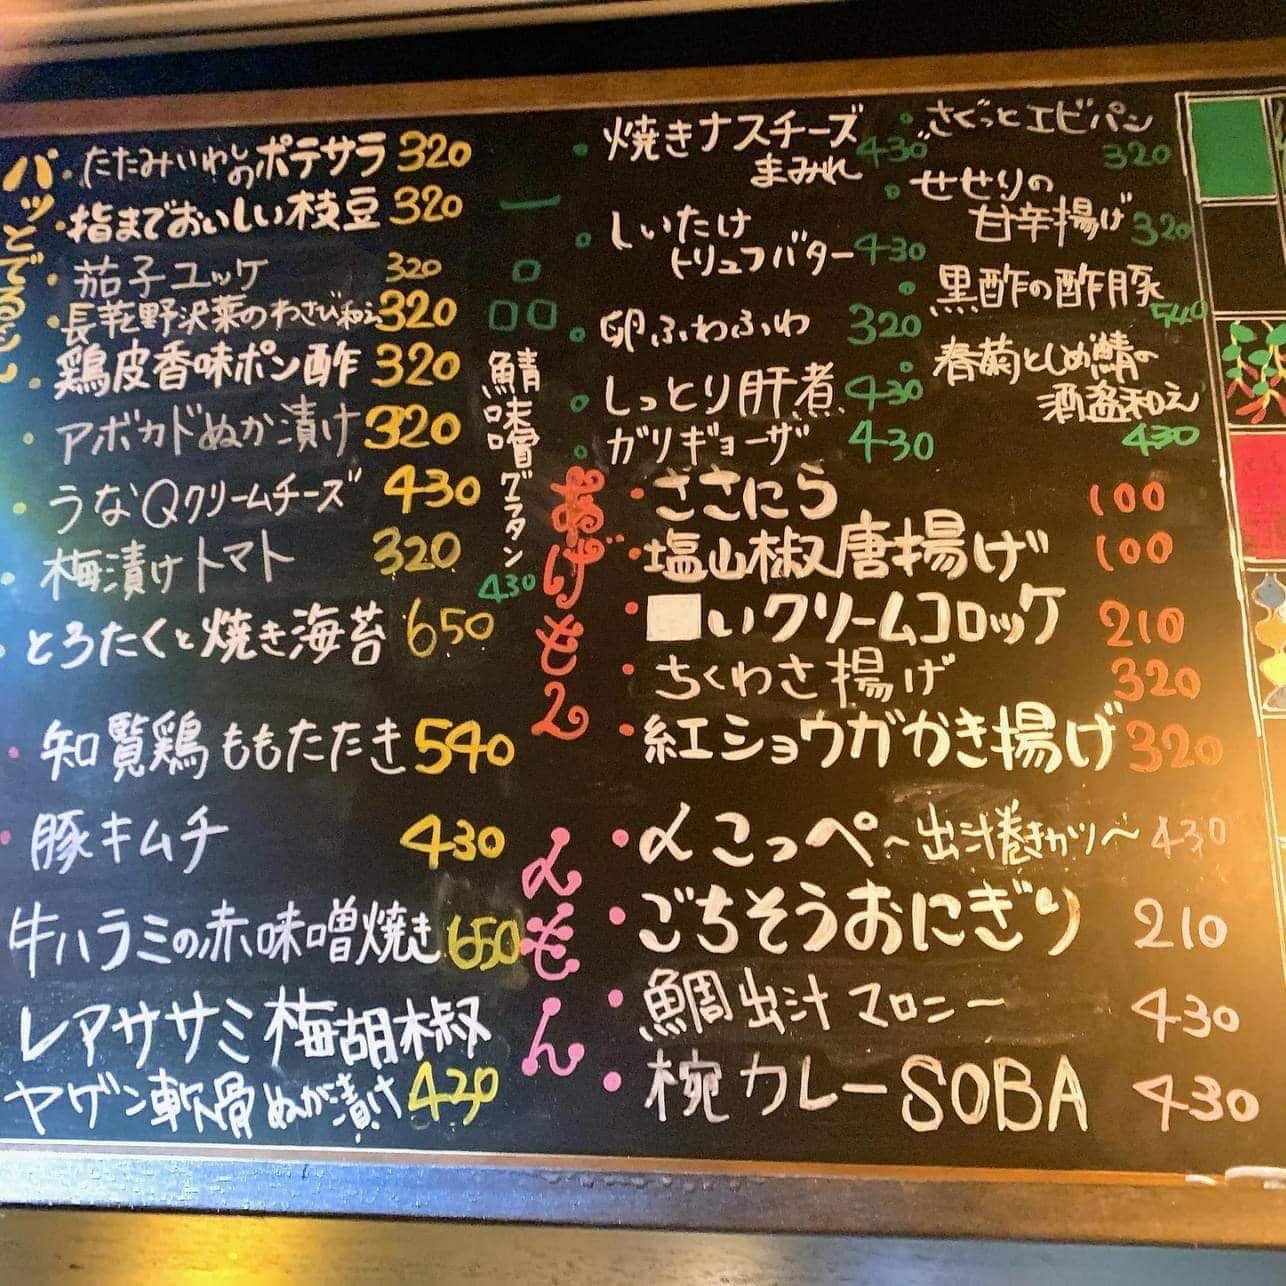 パッとでるよし
・たたみいわしのポテサラ 320
・指までおいしい枝豆 320
茄子ユッケ 320
・長芋と野沢菜のわさび和え 320
・鶏皮香味ポン酢 320
・アボカドぬか漬け 320
・うなQクリームチーズ 430
・梅漬けトマト 320
・とろたくと焼き海苔 650
・知覧鶏ももたたき 540
・豚キムチ 430
牛ハラミの赤味噌焼き 650
レアササミ梅胡椒
ヤゲン軟骨ぬか漬け 430
一品
鯖味噌グラタン
430
・焼きナスチーズ
まみれ 430
・しいたけ
トリュフバター 430
・卵ふわふわ 320
・しっとり肝煮 430
・ガリギョーザ 430
・さくっとエビパン
320
・せせりの
甘辛揚げ 320
・黒酢の酢豚
540
・春菊としめ鯖の
酒盗和え
430
あげもの
・ささにら 100
・塩山椒唐揚げ 100
・■いクリームコロッケ 210
・ちくわさ揚げ 320
・紅ショウガかき揚げ 320
〆もん
・〆こっぺ〜出汁巻きカツ〜 430
・ごちそうおにぎり 210
・鯛出汁マロニー 430
・椀カレーSOBA 430